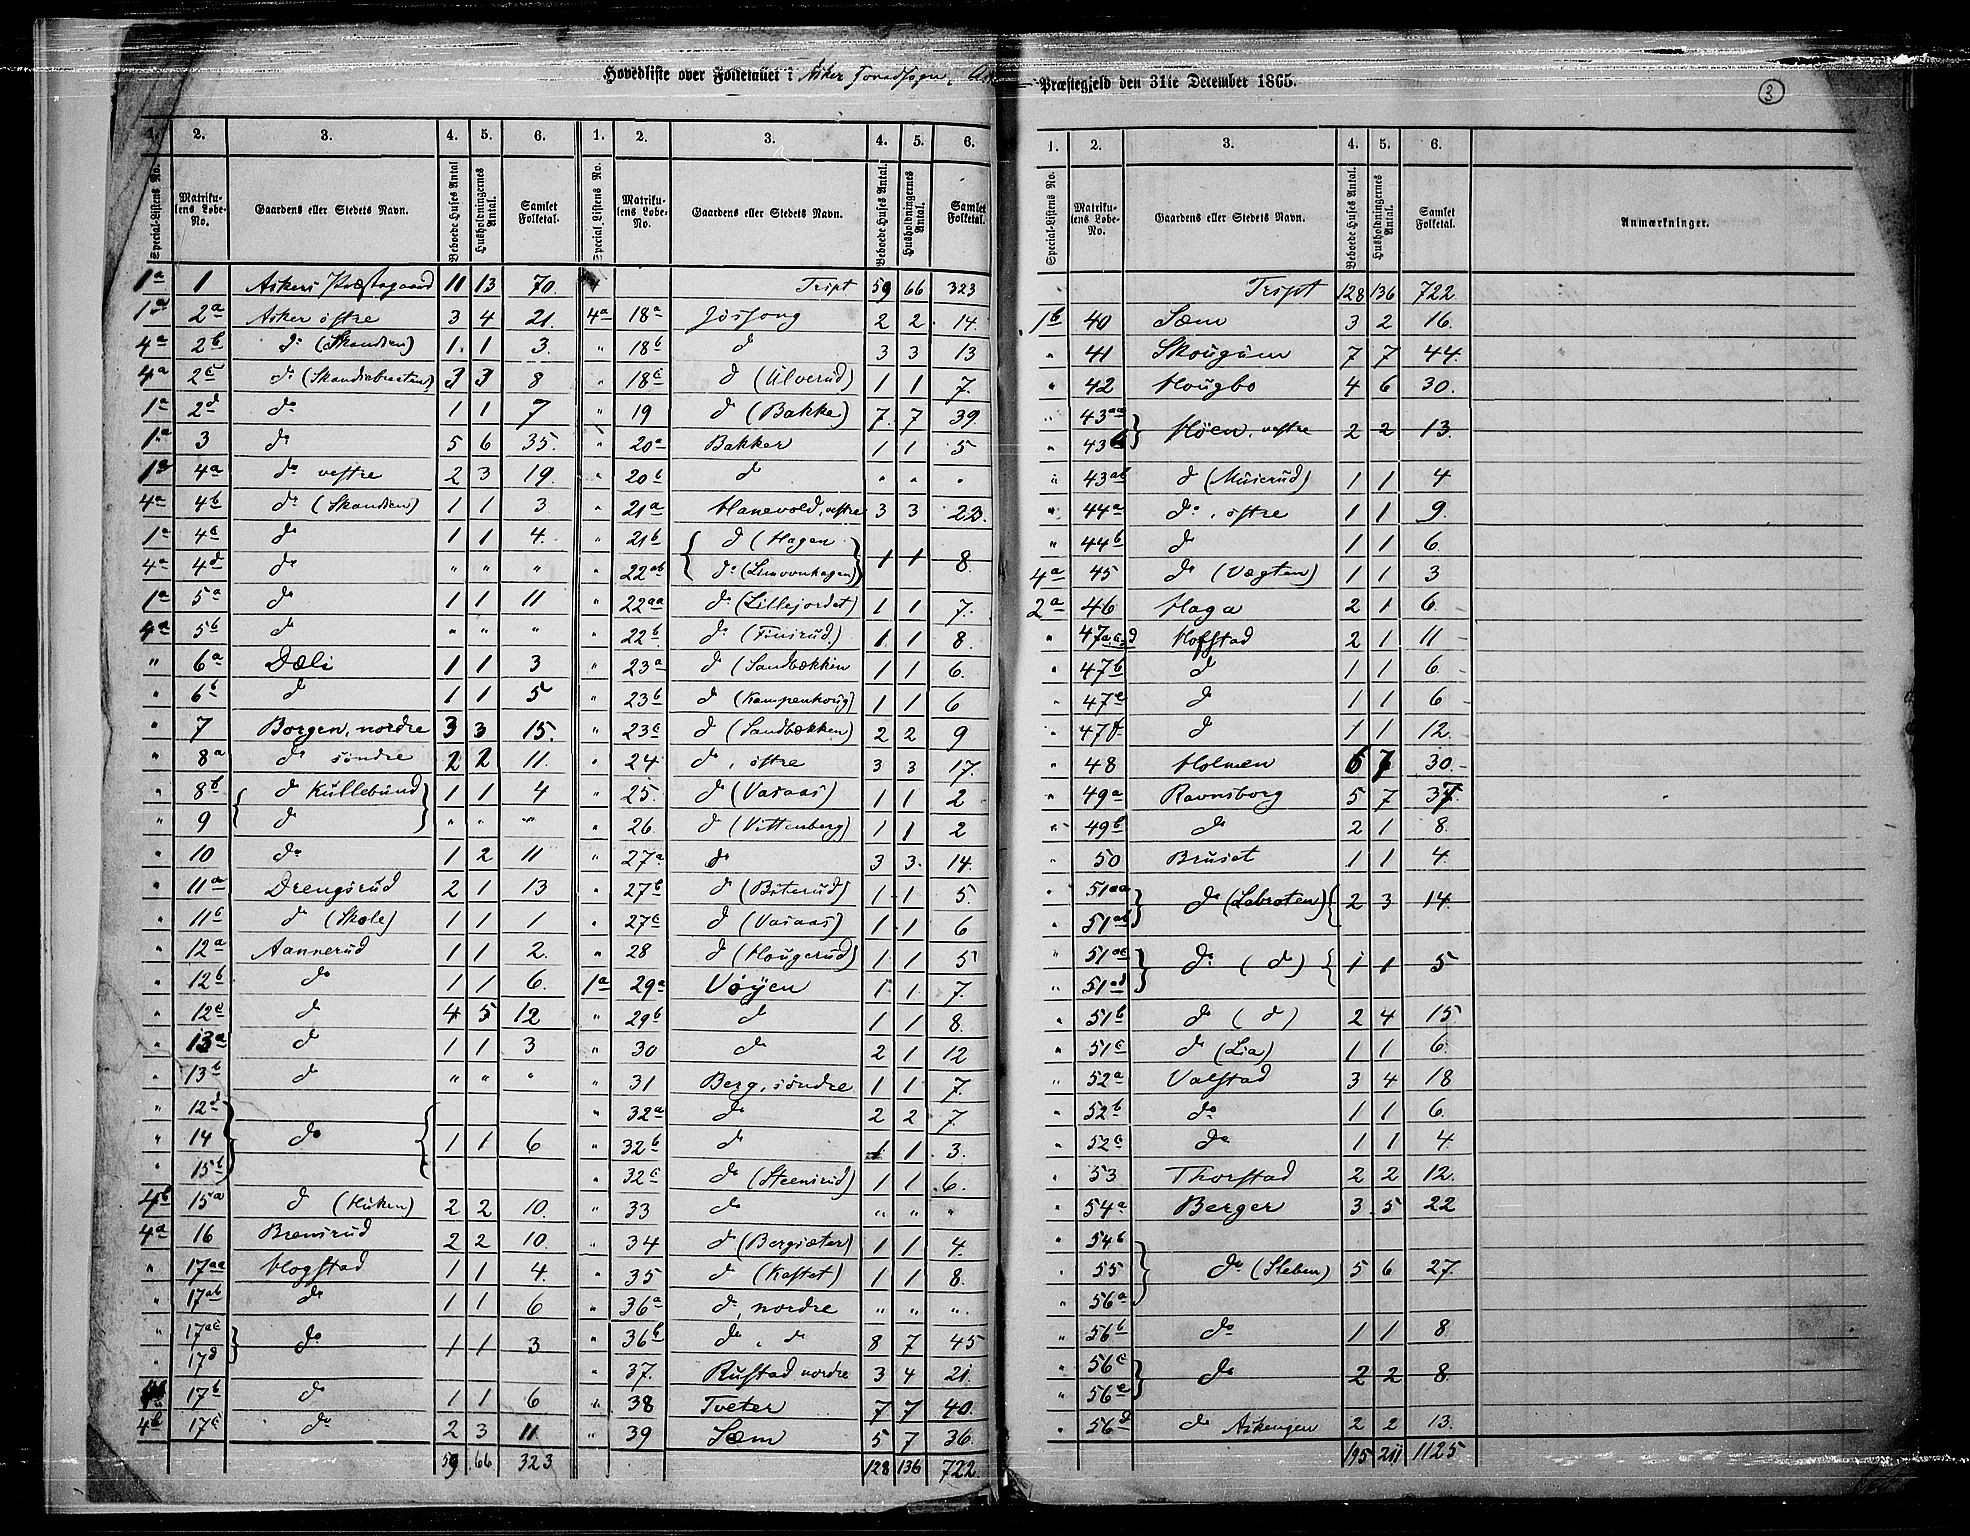 Hovedliste over Folketallet i Asker Præstegjeld den 31te December 1865.
3
1. 2. 3. 4. 5. 6. 1. 2. 3. 4. 5. 6.
Special-Listens No. Matrikulens Løbe-No. Gaardens eller Stedets Navn. Beboede Huses Antal Husholdningernes Antal. Samlet Folketal. Special Listens No. Matrikulens Løbe-No. Gaardens eller Stedets Navn. Beboede Huses Antal. Husholdningernes Antal Samlet Folketal.
1a 1 Askers Præstegaard 11 13 70.
1a 2a Asker østre 3 4 21.
4a 2b do (Skandsen) 1. 1 3.
4a 2c do (Skandsebraaten) 3 3 8
1a 2d do 1 1 7
1a 3 do 5 6 35.
1a 4a do vestre 2 3 19.
4a 4b do (Skandsen) 1 1 3
1a 4c do 1 1 4.
4a 4d do " " "
1a 5a do 1 1 11
4a 5b do " " "
" 6a Dæli 1 1 3
" 6b do 1 1 5
" 7 Borgen, nordre 3 3 15.
" 8a do søndre 2 2 11.
" 8b do Kullebund 1 1 4
" 9 do " " "
" 10 do 1 2 11
" 11a Drengsrud 2 1 13
" 11b do (Skole) 1 1 1
" 12a Aannerud 1 1 2.
" 12b do 1 1 6.
" 12c do 4 5 12
" 13a do 1 1 3
" 13b do " " "
" 12d
" 14 do 1 1 6
" 15b
4b 15a do (Huken) 2 2 10.
4a 16 Brensrud 2 2 10.
" 17aa Hogstad 1 1 4.
" 17ab do 1 1 6
" 17ac do 1 1 3
" 17d
17b do 1 1 6
4b 17c do 2 3 11
59 66 323
Tript 59 66 323
4a 18a Jøssong 2 2. 14.
" 18b do 3 3 13
" 18c do (Ulverud) 1 1 7.
" 19 do (Bakke) 7. 7 39
" 20a Bakker 1 1 5
" 20b do " " "
" 21a Hanevold, vestre 3 3 22.
" 21b do (Hagen 1 1 8.
" 22ab do (Limovnhagen)
" 22aa do (Lillejordet) 1 1 7.
" 22b do (Finsrud) 1 1 8.
" 23a do (Sandbækken 1 1 6.
" 23b do (Kampenhoug) 1 1 6
" 23c do (Sandbækken) 2 2 9
" 24 do, østre 3 3 17.
" 25. do (Vasaas) 1 1 2
" 26. do (Vittenberg) 1 1 2
" 27a do 3 3. 14.
" 27b do (Biterud) 1 1 5.
" 27c do (Vasaas) 1 1 6
" 28 do (Hougerud) 1 1 5
1a 29a Vøyen 1 1 7.
" 29b do 1 1 8.
" 30 do 2 1 12
" 31 Berg, søndre 1 1 7.
" 32a do 2 2 7.
" 32b do 1 1 3.
" 32c do (Steensrud) 1 1 6.
" 33 do " " "
" 34 do (Bergsæter) 1 1 4.
" 35 do (Kastet) 1 1 8.
" 36a do, nordre " " "
" 36b do, do 8 7 45
" 37. Rustad nordre 3 4 21.
" 38 Tveter 7 7 40.
" 39 Sæm 5 7 36.
128 136 722.
1. 2. 3. 4. 5. 6.
Special-Listens No. Matrikulens Løbe-No. Gaardens eller Stedets Navn. Beboede Huses Antal. Husholdningernes Antal. Samlet Folketal. Anmærkninger.
Tript 128 136 722.
1b 40 Sæm 3 2 16.
" 41 Skougum 7 7 44.
" 42 Hougbo 4 6 30.
" 43aa Høen, vestre 2 2 13.
" 43b
" 43ab do (Muserud) 1 1 4
" 44a do, østre 1 1 9.
" 44b do 1 1 6.
4a 45 do (Vægten) 1 1 3
2a 46 Haga 2 1 6.
" 47a,c,d Hofstad 2 1 11
" 47b do 1 1 6.
" 47e do 1 1 6
" 47f do 1 1 12.
" 48 Holmen 6 7 30.
" 49a Ravnsborg 5 7 37.
" 49b do 2 1 8.
" 50 Bruset 1 1 4.
" 51aa do (Løbroten) 2 3 14.
" 51ab
" 51ac do (do) 1 1 5
" 51ad
" 51b do (do) 2 4 15
" 51c do (Lia) 1 1 6.
" 52a Valstad 3 4 18
" 52b do 1 1 6.
" 52c do 1 1 4
" 53 Thorstad 2 2 12.
" 54a Berger 3 5 22
" 54b
" 55 do (Sleben) 5 6 27.
" 56a
" 56b do 1 1 8
" 56c do 2 2 8.
" 56e
" 56d do Askengen 2 2 13.
195 211 1125